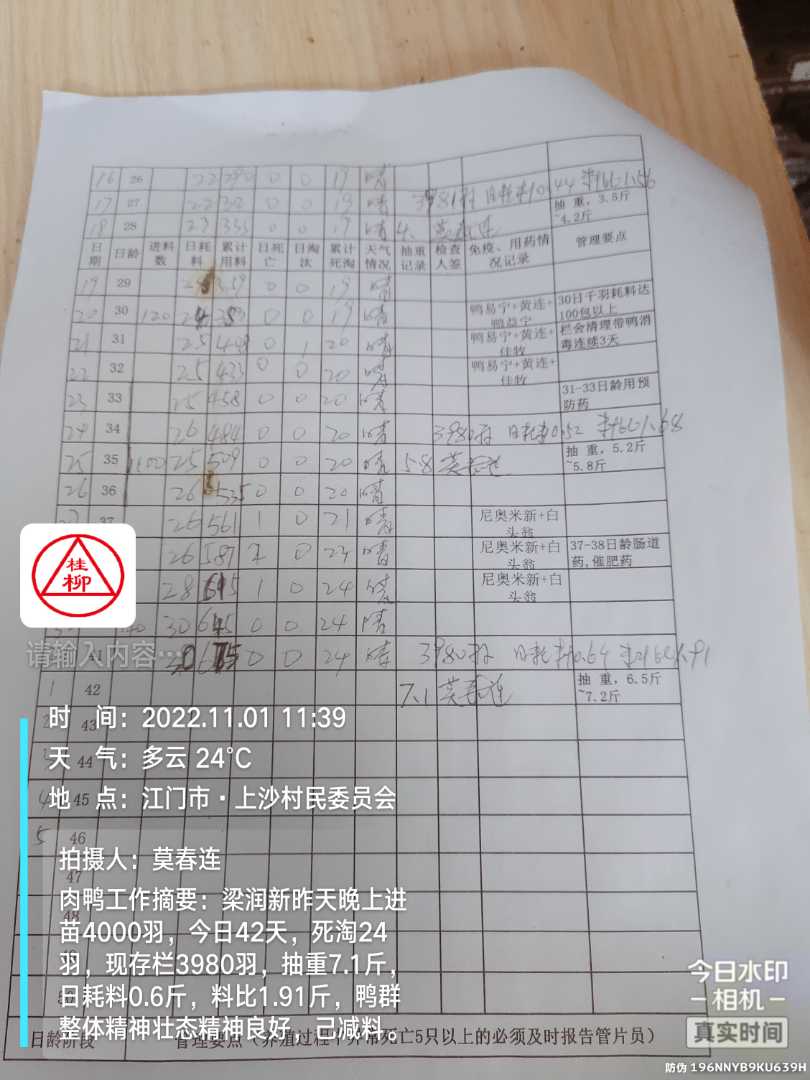 16 26 22 290 0 0 19 晴
3981羽 日耗料0.44 料比1.56
17 27 22 0 0 19 晴 抽重,3.5斤~4.2斤
18 28 23 335 0 0 19 晴 莫春连
日期 日龄 进料数 日耗料 累计用料 日死亡 日淘汰 累计死淘 天气情况 抽重记录 检查人签 免疫、用药情况记录 管理要点
19 29 24 359 0 0 19 晴
20 30 120 24 383 0 0 19 晴 鸭易宁+黄连+鸭益宁 30日千羽耗料达100包以上
21 31 25 0 1 20 晴 鸭易宁+黄连+佳牧 栏舍清理带鸭消毒连续3天
22 32 25 433 0 0 20 晴 鸭易宁+黄连+佳牧
23 33 25 458 0 0 20 晴 31-33日龄用预防药
24 34 26 484 0 0 20 晴 3980羽 日耗料0.52 料比1.68
25 35 100 25 509 0 0 20 晴 5.8 莫春连 抽重,5.2斤~5.8斤
26 36 26 535 0 0 20 晴
37 26 561 1 0 21 晴 尼奥米新+白头翁
26 587 2 0 23 晴 尼奥米新+白头翁 37-38日龄肠道药,催肥药
28 615 1 0 24 晴 尼奥米新+白头翁
30 645 0 0 24 晴
30 675 0 0 24 晴 3980羽 日耗料0.64 料比1.91
1 42 7.1 莫春连 抽重,6.5斤~7.2斤
43
44
4 45
5 46
47
48
日龄阶段 管理要点(养殖过程中异常死亡5只以上的必须及时报告管片员)
桂柳
请输入内容…
时 间:2022.11.01 11:39
天 气:多云 24℃
地 点:江门市·上沙村民委员会
拍摄人:莫春连
肉鸭工作摘要:梁润新昨天晚上进
苗4000羽,今日42天,死淘24
羽,现存栏3980羽,抽重7.1斤,
日耗料0.6斤,料比1.91斤,鸭群
整体精神壮态精神良好,己减料。
今日水印
相机
真实时间
防伪 196NNYB9KU639H